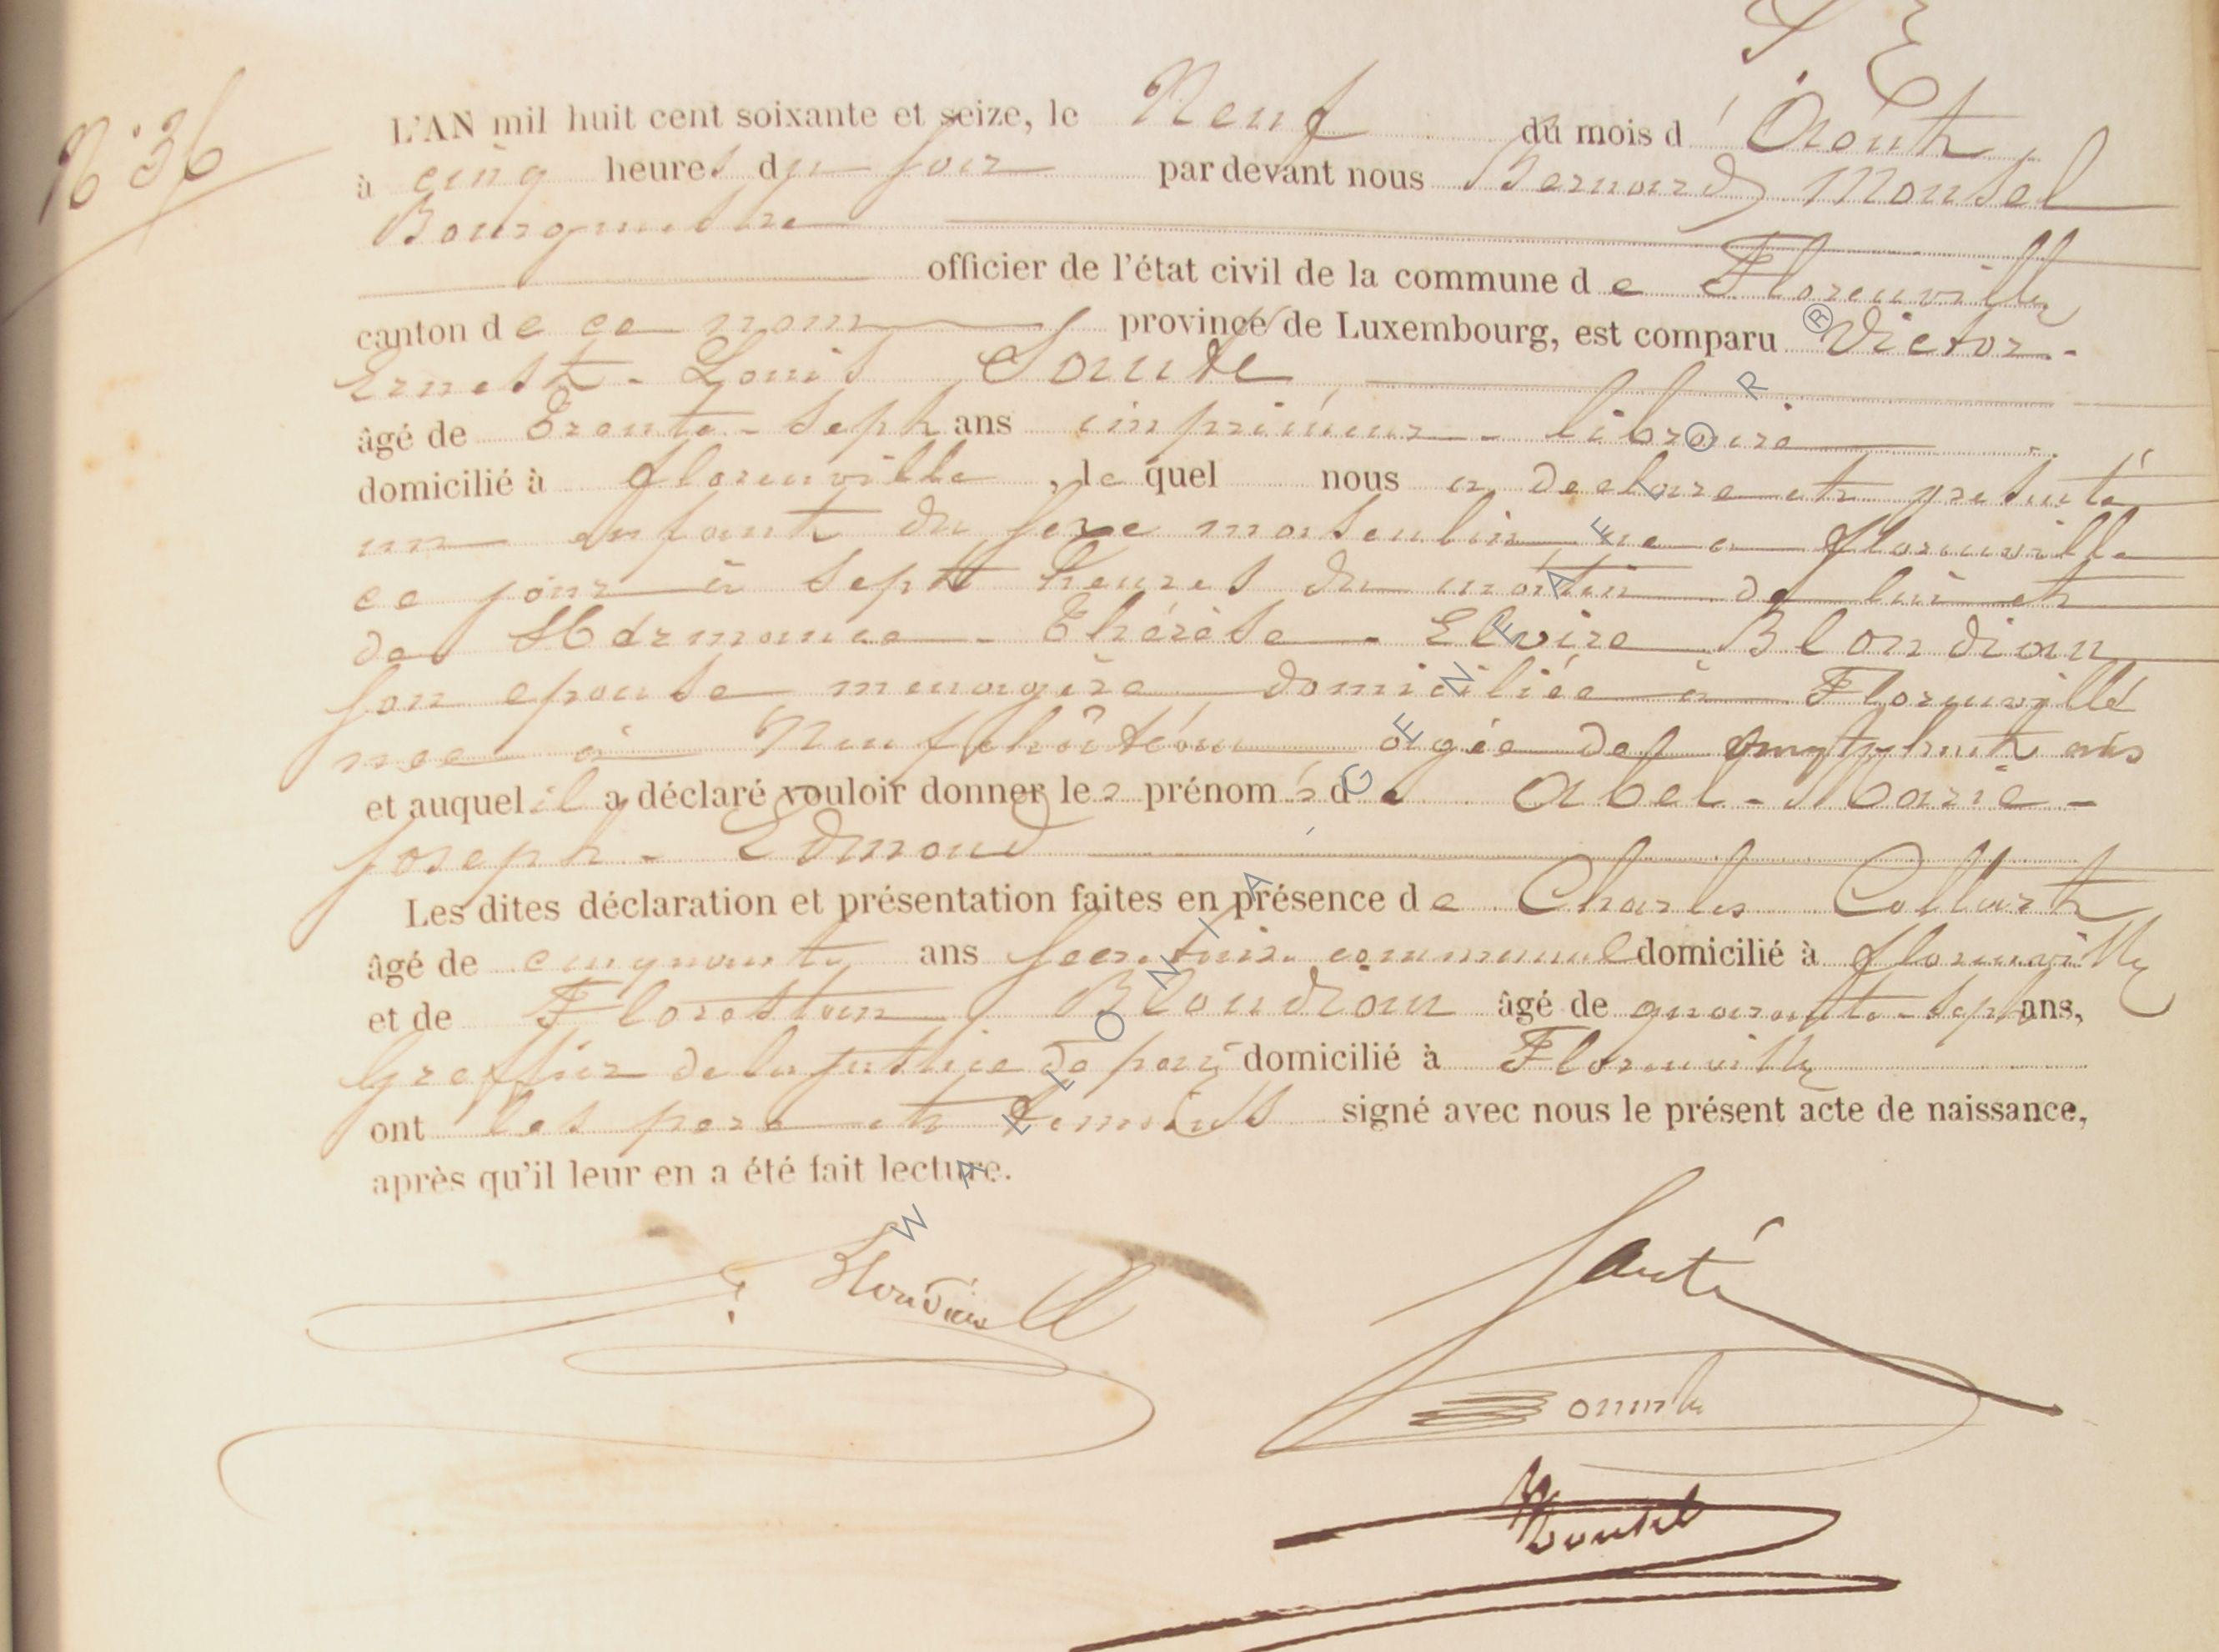 N° 36
L'AN mil huit cent soixante et seize, le Neuf du mois d'Août
à cinq heures du soir par devant nous Bernard Monsel
Bourgmestre
officier de l'état civil de la commune de Florenville
canton de ce nom province de Luxembourg, est comparu Victor-
Ernest-Louis Sauté
âgé de Trente-sept ans imprimeur-libraire
domicilié à florenville, lequel nous a declare et presenté
un enfant du sexe masculin ne a florenville
ce jour à sept heures du matin de lui et
de Hermance-Thérèse-Elvire Blondiau
son epouse menagère domiciliée à Florenville
nee à Neufchâteau agée de vingt-huit ans
et auquel il a déclaré vouloir donner les prénoms de Abel-Marie-
Joseph-Edmond
Les dites déclaration et présentation faites en présence de Charles Collart
âgé de cinquante ans secretaire communal domicilié à florenville
et de Florestan Blondiau âgé de quarante-sept ans,
Greffier de la justice de paix domicilié à Florenville
ont les pere et temoins signé avec nous le présent acte de naissance,
après qu'il leur en a été fait lecture.
Blondiau
Sauté
Monsel
WALLONIA GENEALFLOR ®